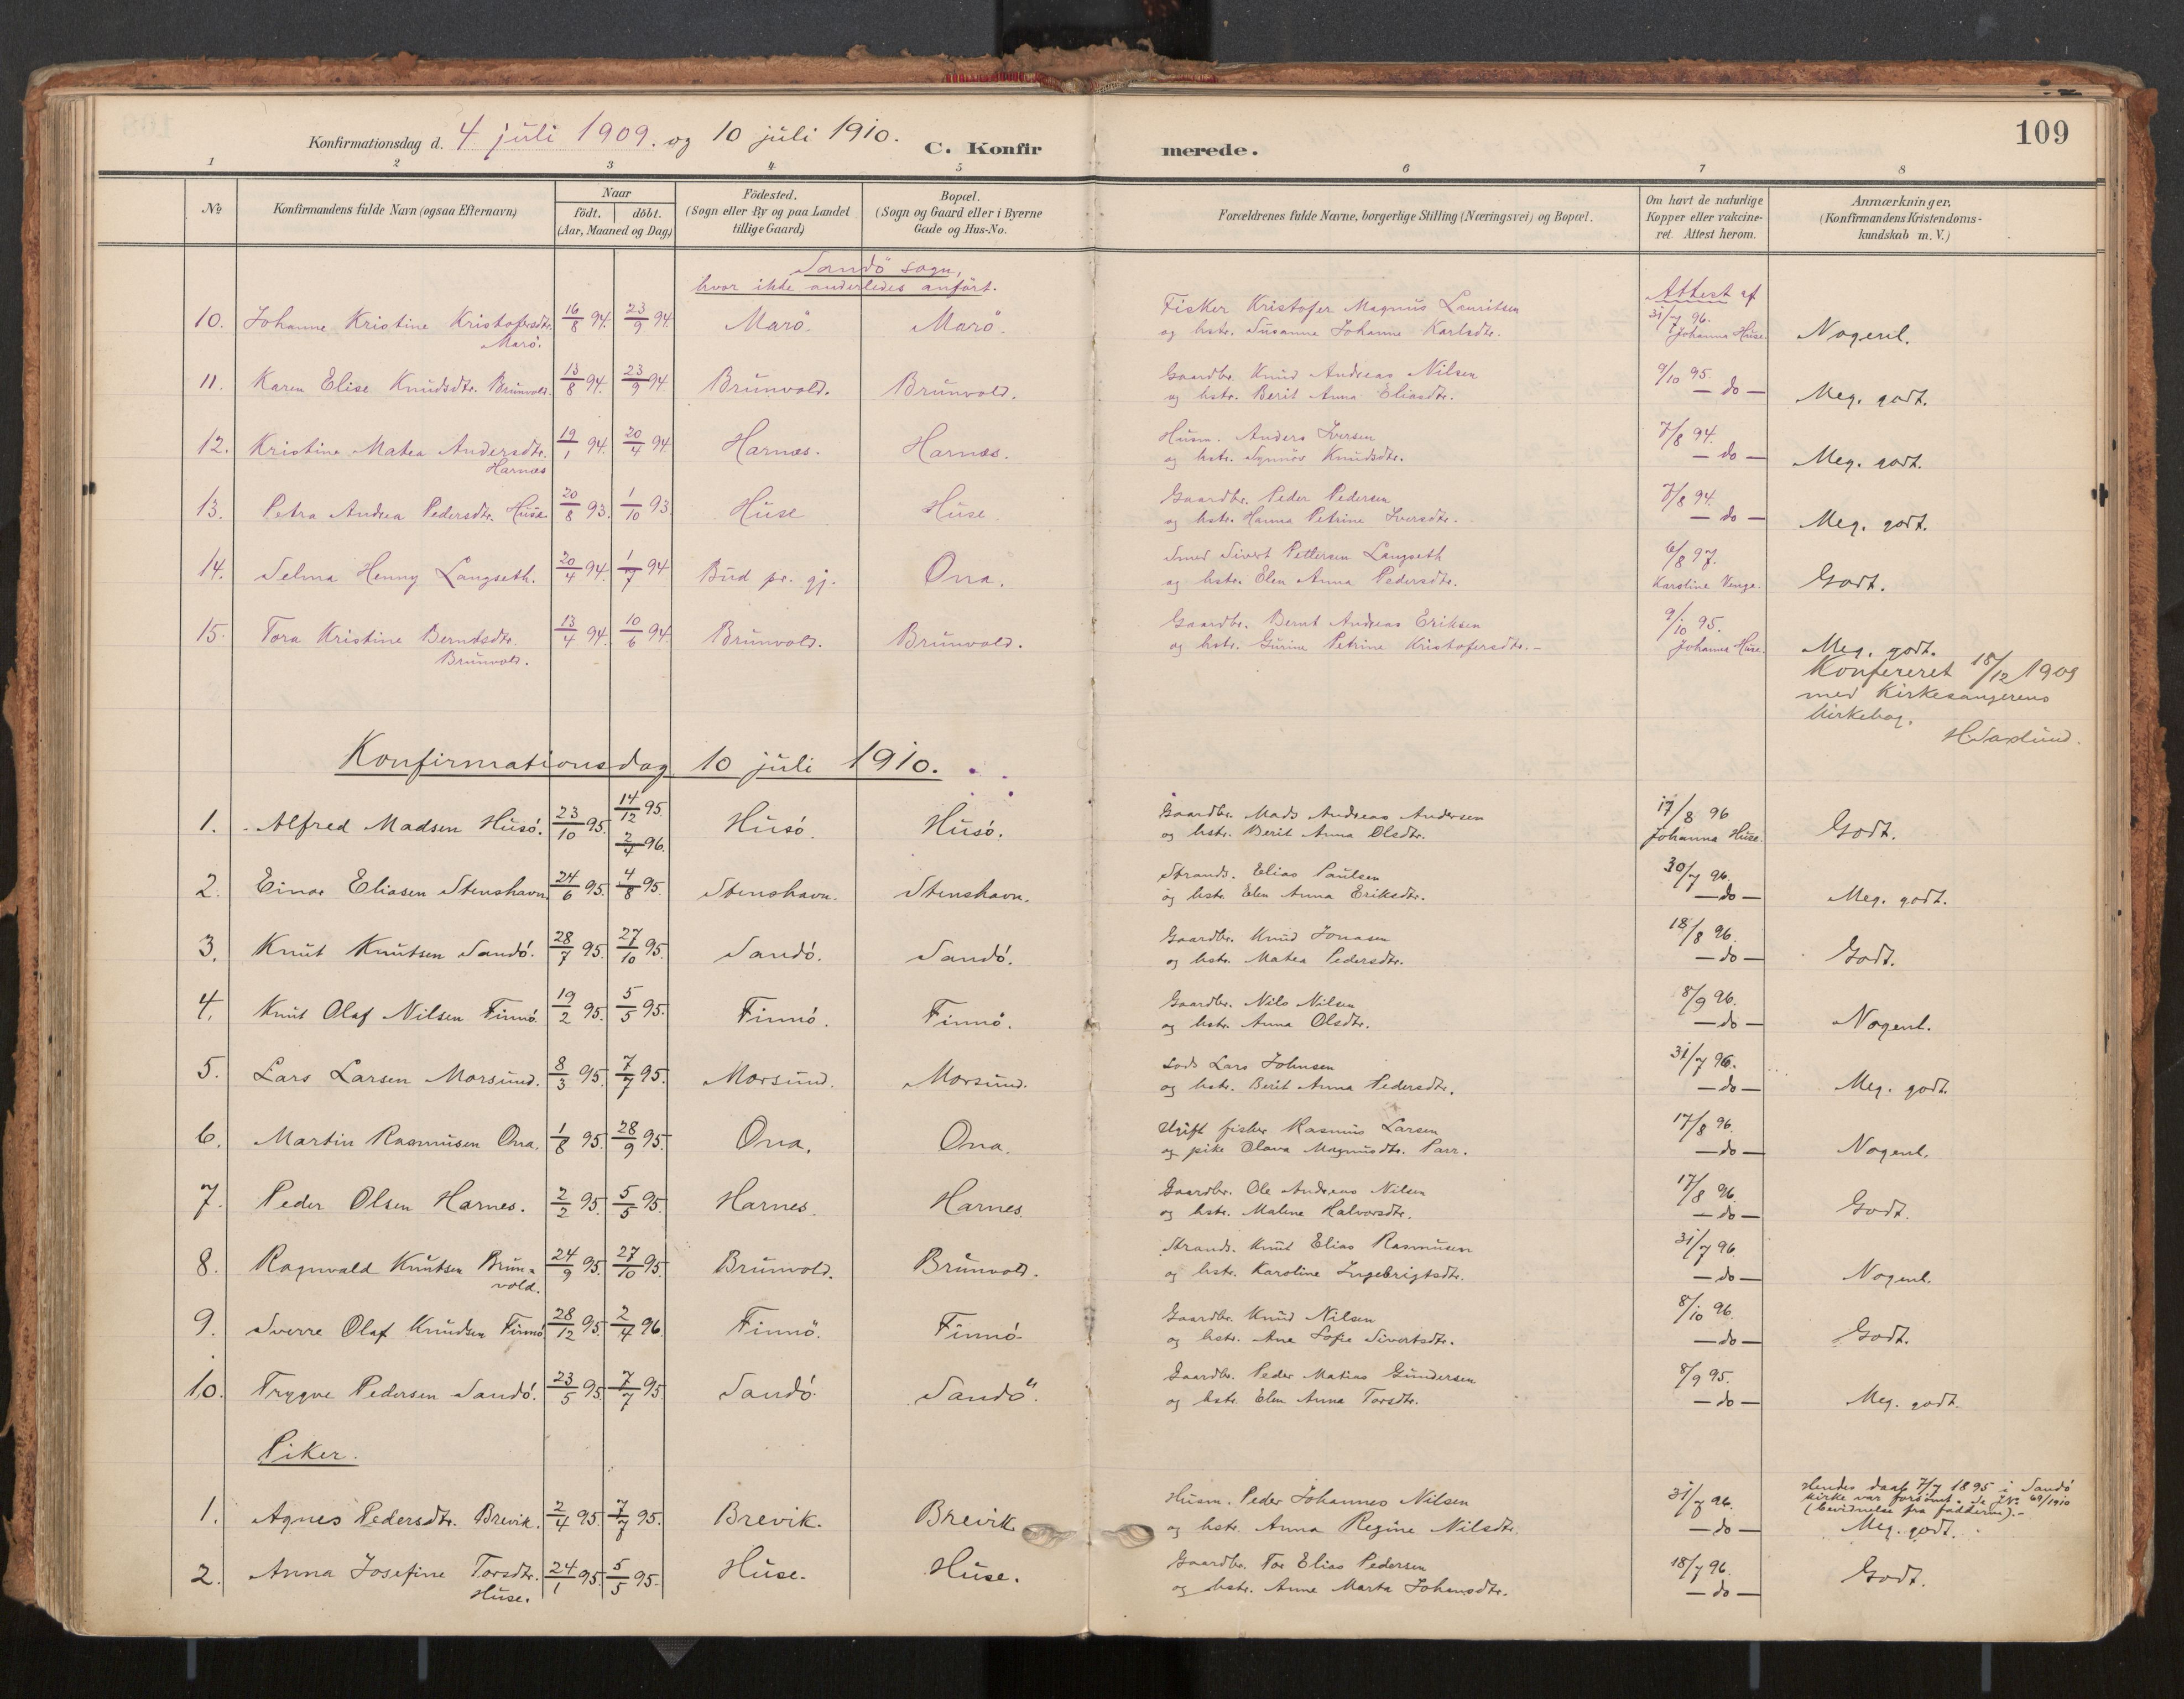 109
Konfirmationsdag d. 4 juli 1909. og 10 juli 1910.
C. Konfirmerede.
1 2 3 4 5 6 7 8
No
Konfirmandens fulde Navn (ogsaa Efternavn)
Naar
födt. | döbt.
(Aar, Maaned og Dag)
Födested.
(Sogn eller By og paa Landet
tillige Gaard)
Bopæl.
(Sogn og Gaard eller i Byerne
Gade og Hus-No.
Forældrenes fulde Navne, borgerlige Stilling (Næringsvei) og Bopæl.
Om havt de naturlige
Kopper eller vakcine-
ret. Attest herom.
Anmærkninger.
(Konfirmandens Kristendoms-
kundskab m. V.)
Sandö sogn,
hvor ikke anderledes anført.
Attest af
10. Johanne Kristine Kristofersdtr. 16/8 94. 23/9 94. Marö. Marö. Fisker Kristofer Magnus Lauritsen 31/7 96. Nogenl.
Marö. og hstr. Susanne Johanne Karlsdtr. Johanna Huse.
11. Karen Elise Knudsdtr. Brunvold. 13/8 94. 23/9 94. Brunvold. Brunvold. Gaardbr. Knud Andreas Nilsen 9/10 95. Meg. godt.
og hstr. Berit Anna Eliasdtr. — do —
12. Kristine Matea Andersdtr. 19/1 94. 20/4 94. Harnæs. Harnæs. Husm. Anders Iversen 7/8 94. Meg. godt.
Harnæs og hstr. Synnöv Knudsdtr. — do —
13. Petra Andrea Pedersdtr. Huse. 20/8 93. 1/10 93. Huse Huse Gaardbr. Peder Pedersen 7/8 94. Meg. godt.
og hstr. Hanna Petrine Iversdtr. — do —
14. Selma Henny Langseth. 20/4 94. 1/7 94. Bud pr. gj. Ona. Smed Sivert Pettersen Langseth 6/8 97. Godt.
og hstr. Elen Anna Pedersdtr. Karoline Venge.
15. Tora Kristine Berntsdtr. 13/4 94. 10/6 94. Brunvold. Brunvold. Gaardbr. Bernt Andreas Eriksen 9/10 95. Meg. godt.
Brunvold. og hstr. Gurine Petrine Kristofersdtr. Johanna Huse.
Konfereret 18/12 1909
med Kirkesangerens
kirkebog.
H. Saxlund.
Konfirmationsdag 10 juli 1910.
1. Alfred Madsen Husö. 23/10 95. 14/12 95. 2/4 96. Husö. Husö. Gaardbr. Mads Andreas Andersen 17/8 96 Godt.
og hstr. Berit Anna Olsdtr. Johanna Huse.
2. Einar Eliasen Stenshavn. 24/6 95. 4/8 95. Stenshavn. Stenshavn. Strands. Elias Paulsen 30/7 96. Meg. godt.
og hstr. Elen Anna Eriksdtr. — do —
3. Knut Knutsen Sandö. 28/7 95. 27/10 95. Sandö. Sandö. Gaardbr. Knud Jonasen 18/8 96. Godt.
og hstr. Matea Pedersdtr. — do —
4. Knut Olaf Nilsen Finnö. 19/2 95. 5/5 95. Finnö. Finnö. Gaardbr. Nils Nilsen 8/9 96. Nogenl.
og hstr. Anna Olsdtr. — do —
5. Lars Larsen Morsund. 8/3 95. 7/7 95. Morsund. Morsund. Lods Lars Johnsen 31/7 96. Meg. godt.
og hstr. Berit Anna Pedersdtr. — do —
6. Martin Rasmusen Ona. 1/8 95. 28/9 95. Ona. Ona. Ugift fisker Rasmus Larsen 17/8 96. Nogenl.
og pike Olava Magnusdtr. Parr. — do —
7. Peder Olsen Harnes. 2/2 95. 5/5 95. Harnes. Harnes. Gaardbr. Ole Andreas Nilsen 17/8 96. Godt.
og hstr. Malene Halvorsdtr. — do —
8. Ragnvald Knutsen Brun- 24/9 95. 27/10 95. Brunvold. Brunvold. Strands. Knut Elias Rasmusen 31/7 96. Nogenl.
vold. og hstr. Karoline Ingebrigtsdtr. — do —
9. Sverre Olaf Knudsen Finnö 28/12 95. 2/4 96. Finnö. Finnö. Gaardbr. Knud Nilsen 8/10 96. Godt.
og hstr. Ane Sofie Sivertsdtr. — do —
10. Trygve Pedersen Sandö. 23/5 95. 7/7 95. Sandö. Sandö. Gaardbr. Peder Matias Gundersen 8/9 95. Meg. godt.
og hstr. Elen Anna Torsdtr. — do —
Piker.
1. Agnes Pedersdtr. Brevik. 2/4 95. 7/7 95. Brevik. Brevik Husm. Peder Johannes Nilsen 31/7 96. Hendes daab 7/7 1895 i Sandö
kirke var forsömt. Se J.No 69/1910
(bevidnelse fra fadderne).
og hstr. Anna Regine Nilsdtr. — do — Meg. godt.
2. Anna Josefine Torsdtr. 24/1 95. 5/5 95. Huse. Huse. Gaardbr. Tor Elias Pedersen 18/7 96. Godt.
Huse. og hstr. Anne Marta Johansdtr. — do —